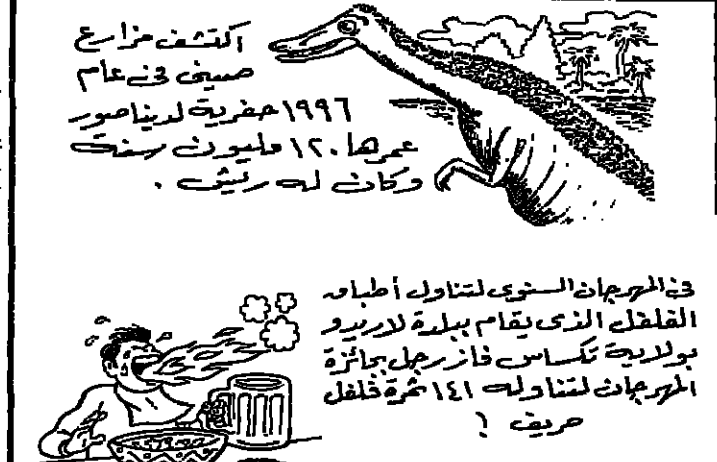 اكتشف مزارع
صيني في عام
١٩٩٦ حفرية لديناصور
عمرها ١٢٠ مليون سنة
وكان له ريش .
في المهرجان السنوي لتناول أطباق
الفلفل الذي يقام ببلدة لاريدو
بولاية تكساس فاز رجل بجائزة
المهرجان لتناوله ١٤١ ثمرة فلفل
حريف !